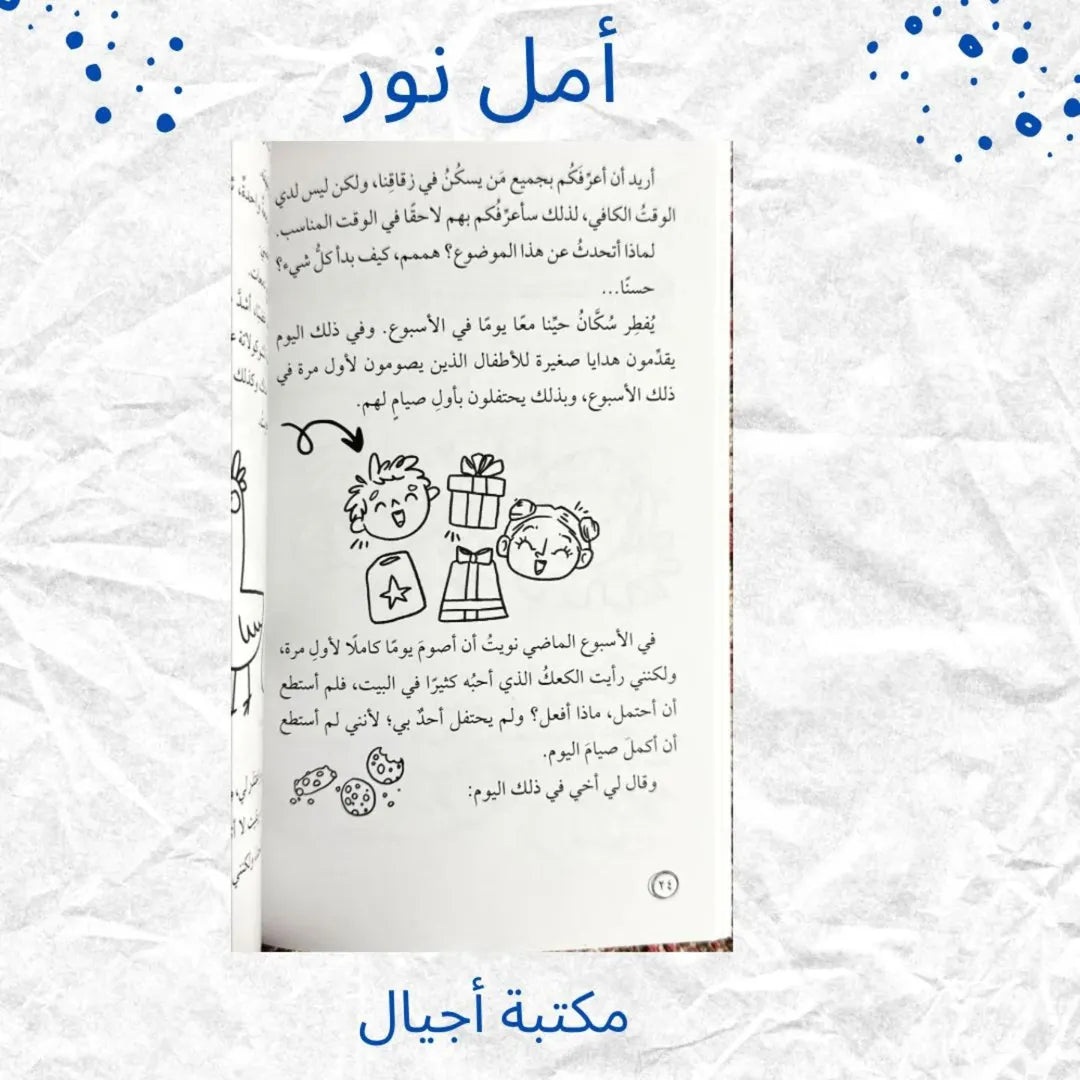 أمل نور
أريد أن أعرِّفَكُم بجميع مَن يسكُنُ في زقاقِنا، ولكن ليس لدي
الوقتُ الكافي، لذلك سأعرِّفُكم بهم لاحقًا في الوقت المناسب.
لماذا أتحدثُ عن هذا الموضوع؟ هممم، كيف بدأ كلُّ شيء؟
حسنًا...
يُفطِر سُكَّانُ حيِّنا معًا يومًا في الأسبوع. وفي ذلك اليوم
يقدِّمون هدايا صغيرة للأطفال الذين يصومون لأول مرة في
ذلك الأسبوع، وبذلك يحتفلون بأولِ صيامٍ لهم.
في الأسبوع الماضي نويتُ أن أصومَ يومًا كاملًا لأولِ مرة،
ولكنني رأيت الكعكُ الذي أحبُه كثيرًا في البيت، فلم أستطع
أن أحتمل، ماذا أفعل؟ ولم يحتفل أحدٌ بي؛ لأنني لم أستطع
أن أكملَ صيامَ اليوم.
وقال لي أخي في ذلك اليوم:
٢٤
مكتبة أجيال